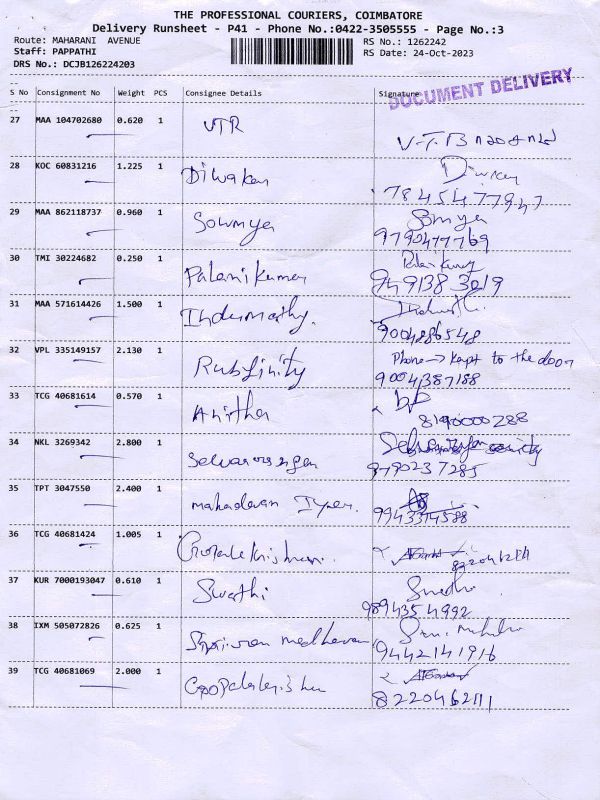 THE PROFESSIONAL COURIERS, COIMBATORE
Delivery Runsheet - P41 - Phone No.:0422-3505555 - Page No.:3
Route: MAHARANI AVENUE RS No.: 1262242
Staff: PAPPATHI RS Date: 24-Oct-2023
DRS No.: DCJB126224203
DOCUMENT DELIVERY
S No Consignment No Weight PCS Consignee Details Signature
27 MAA 104702680 0.620 1 VTR
28 KOC 60831216 1.225 1 Diwakar
7845477947
29 MAA 862118737 0.960 1 Sowmya Somya
9790477769
30 TMI 30224682 0.250 1 Palanikumar
949138 3019
31 MAA 571614426 1.500 1 Indumathy.
9004286548
32 VPL 335149157 2.130 1 Rubfinity Phone → Kept to the door
9004387188
33 TCG 40681614 0.570 1 Anitha
8190000288
34 NKL 3269342 2.800 1 Selvarangan
9790237285
35 TPT 3047550 2.400 1 mahadevan Iyer.
9943374588
36 TCG 40681424 1.005 1
37 KUR 7000193047 0.610 1 Swathi Swathi
9894354992
38 IXM 505072826 0.625 1
9442141916
39 TCG 40681069 2.000 1
8220462111